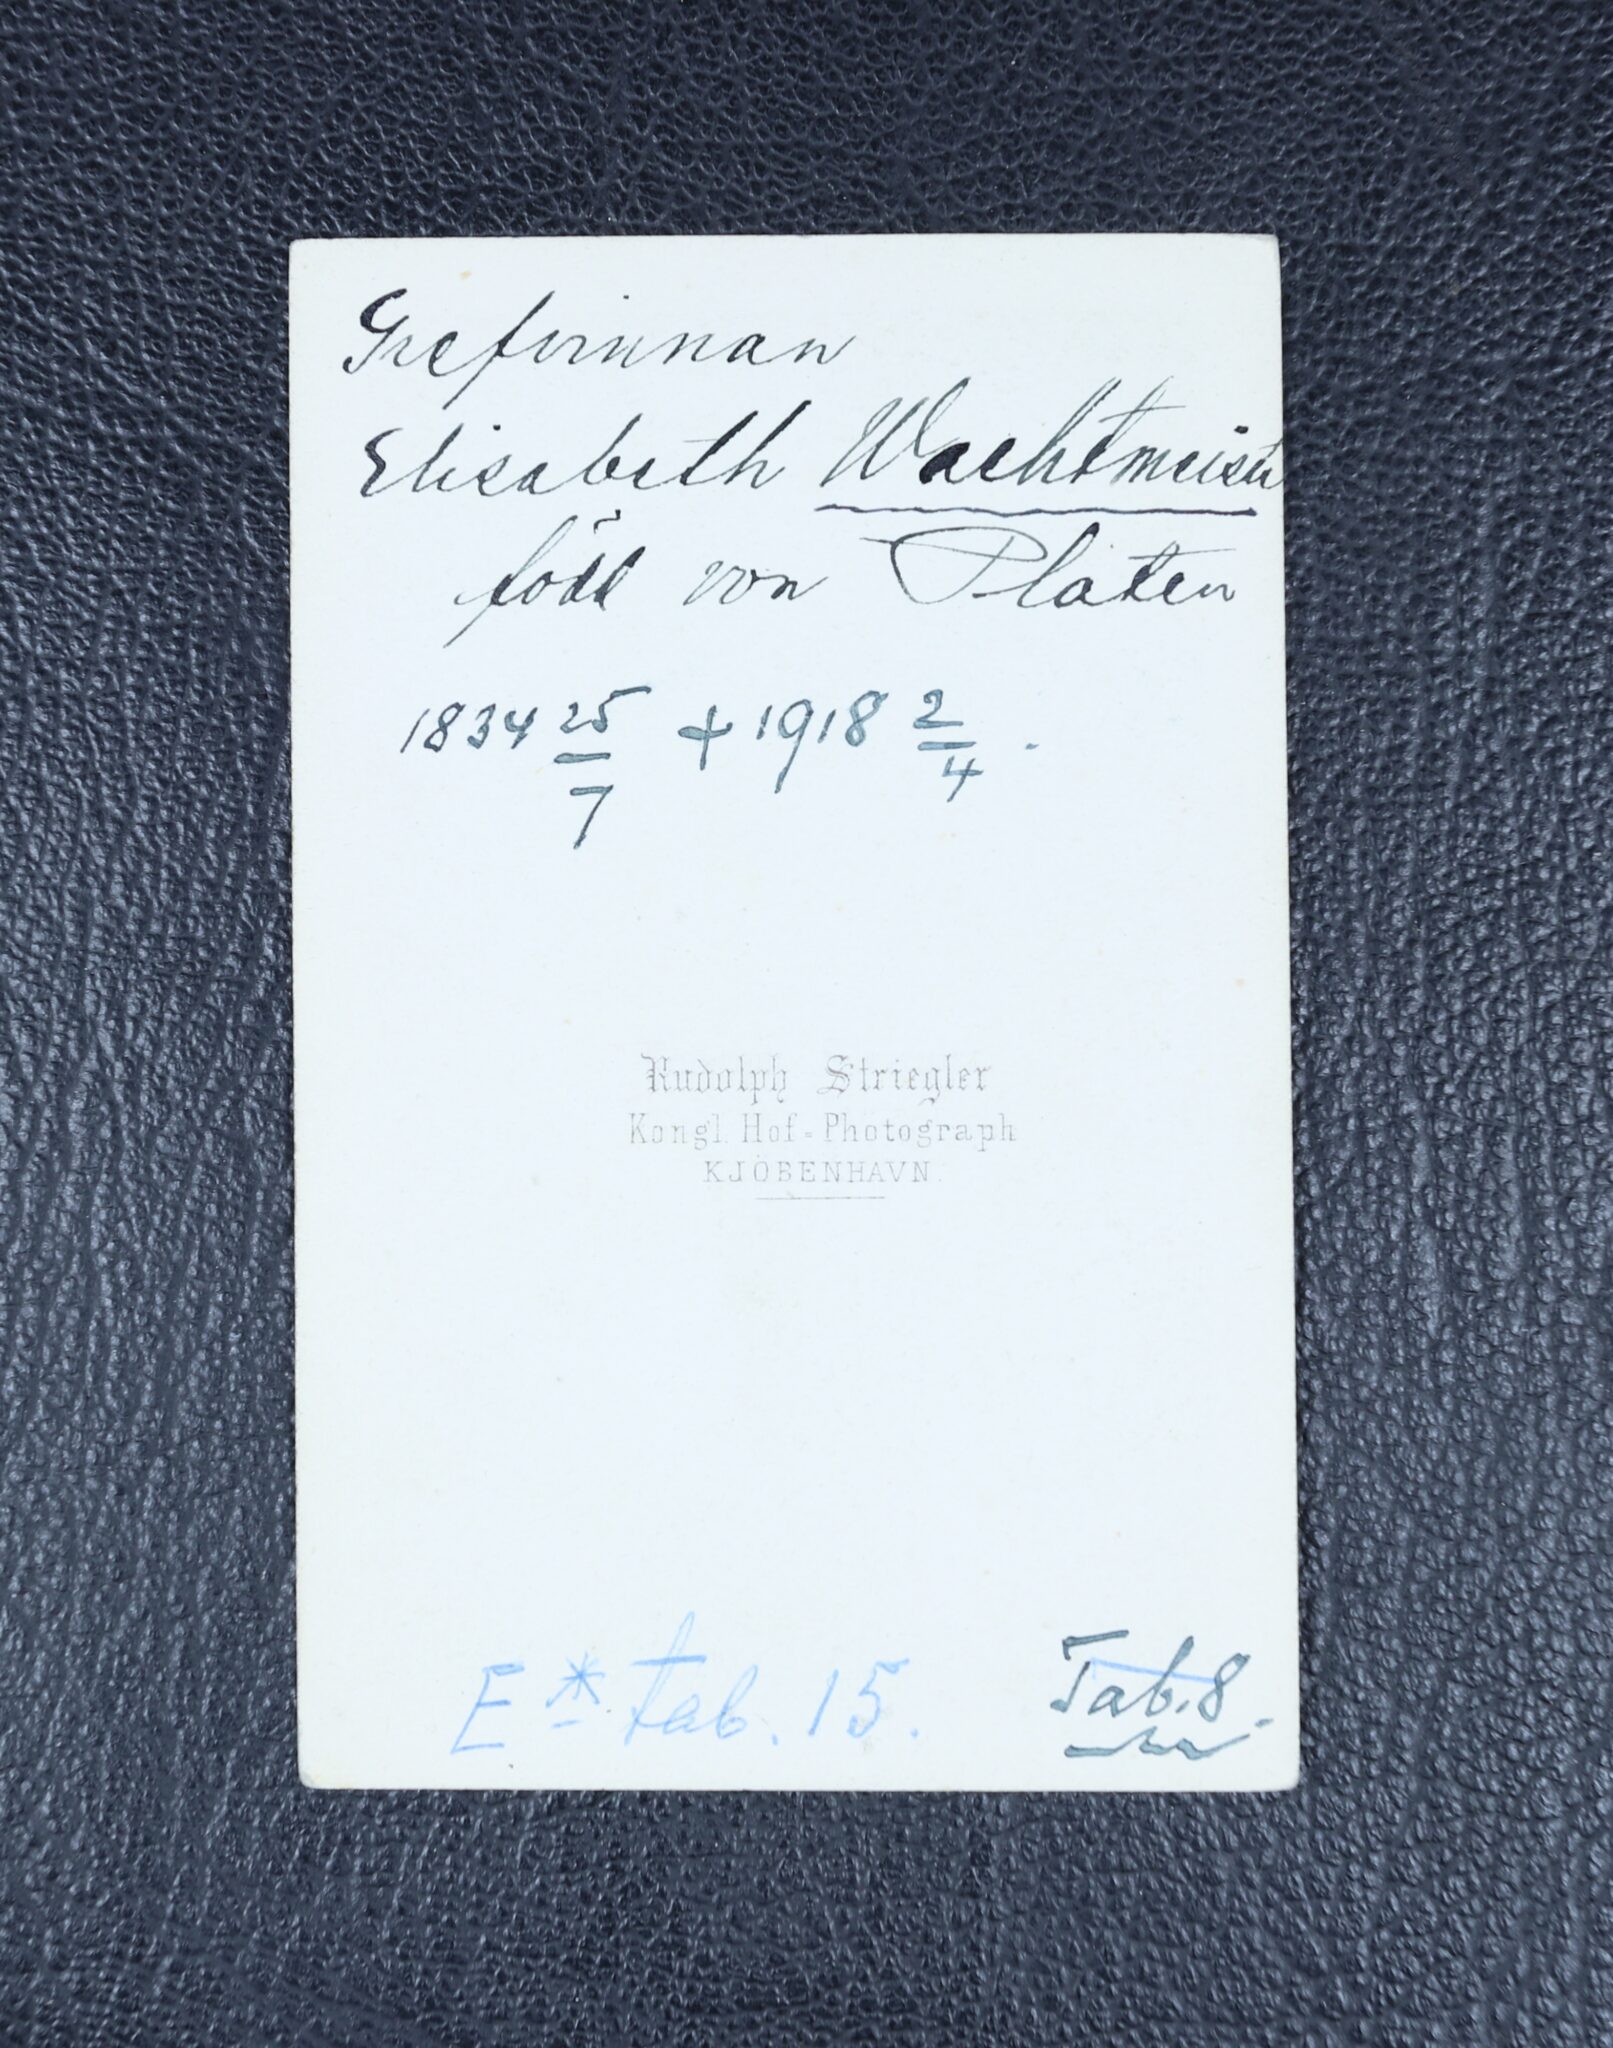 Grefvinnan
Elisabeth Wachtmeister
född von Platen
1834 25/7 + 1918 2/4.
Rudolph Striegler
Kongl. Hof-Photograph
KJÖBENHAVN.
E* tab. 15.
Tab. 8.